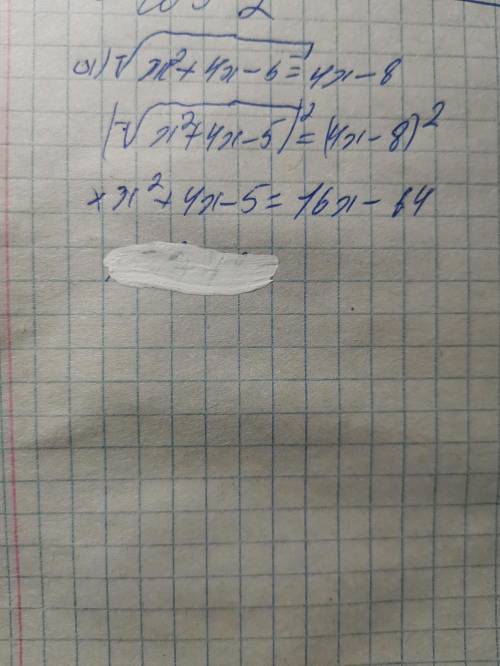 а) √x²+4x-5=4x-8
(√x²+4x-5)²=(4x-8)²
x²+4x-5=16x-64